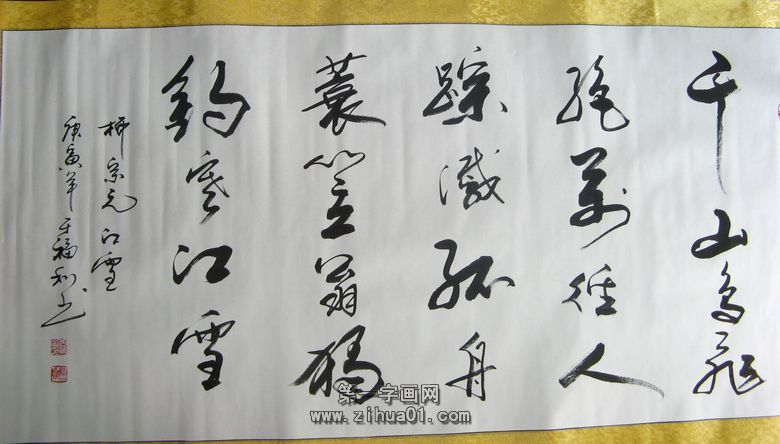 千山鸟飛
绝萬徑人
踪滅孤舟
蓑笠翁獨
釣寒江雪
柳宗元江雪
庚寅年 福利书
第一字画网
www.zihua01.com